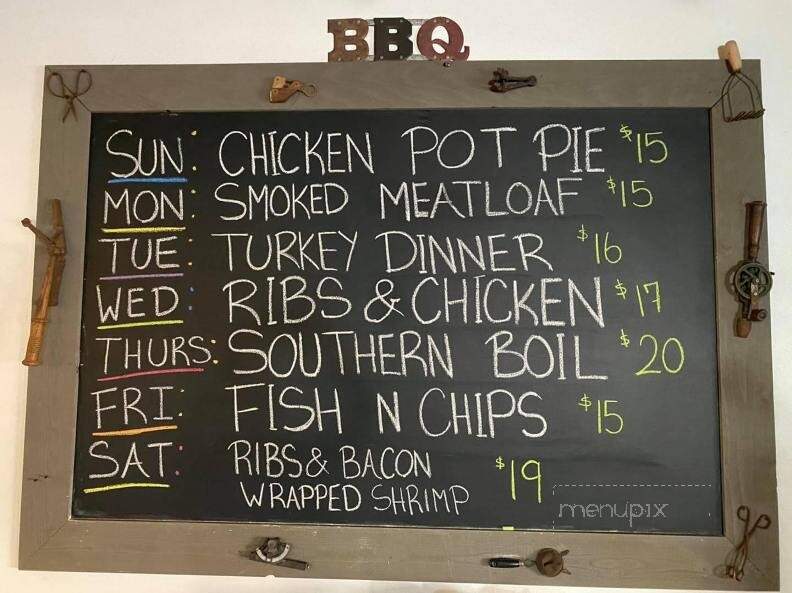 BBQ
SUN: CHICKEN POT PIE $15
MON: SMOKED MEATLOAF $15
TUE: TURKEY DINNER $16
WED: RIBS & CHICKEN $17
THURS: SOUTHERN BOIL $20
FRI: FISH N CHIPS $15
SAT: RIBS & BACON
WRAPPED SHRIMP $19
menupix